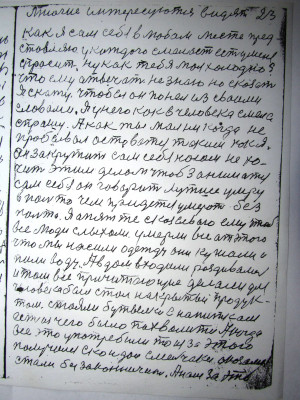 Многие интересуются видят 23
как я сам себя в любом месте пред
ставляю у каждого смекает есть умея
спросить ну как тебя то холодно?
что ему отвечать не знаю но сказать
я скажу чтобы он понял из своими
словами. Я у него как в человека смело
спрошу. А как ты мал никогда не
пробывал оставатся таким как я.
Он закрутит сам себя носом не хо
чит этим делом чтоб заниматся
сам себе он говорит лутшее умеру
в пальто чем придется умереть без
пальто. Я опять те скажего ему чтоб
все люди слыхали умерли вы от того
что мы носим одежду они кушаем и
пили воду. А в дом входили раздивались
и там все причитающие делали для
человека был стол накрытый продук
том. стояли бутылки с напитками
есть из чего было похволится Иногда
все это употребили то и за этого
получили скандал смелчаки оказались
стали безаконники. А наш за это